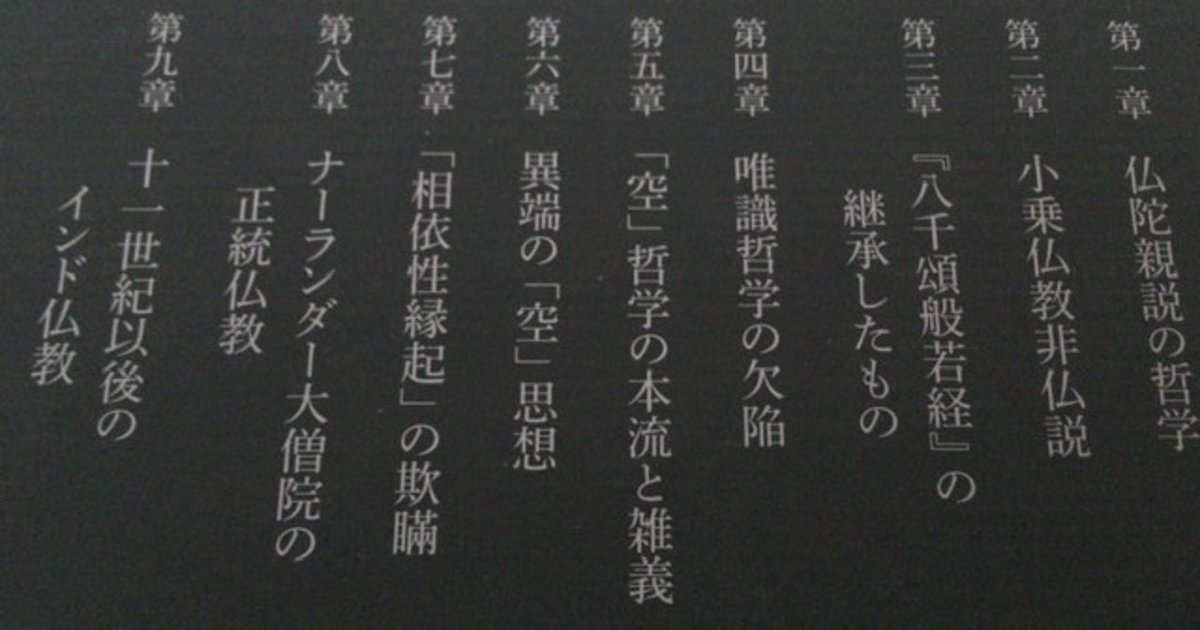 第一章 仏陀親説の哲学
第二章 小乗仏教非仏説
第三章 『八千頌般若経』の
継承したもの
第四章 唯識哲学の欠陥
第五章 「空」哲学の本流と雑義
第六章 異端の「空」思想
第七章 「相依性縁起」の欺瞞
第八章 ナーランダー大僧院の
正統仏教
第九章 十一世紀以後の
インド仏教